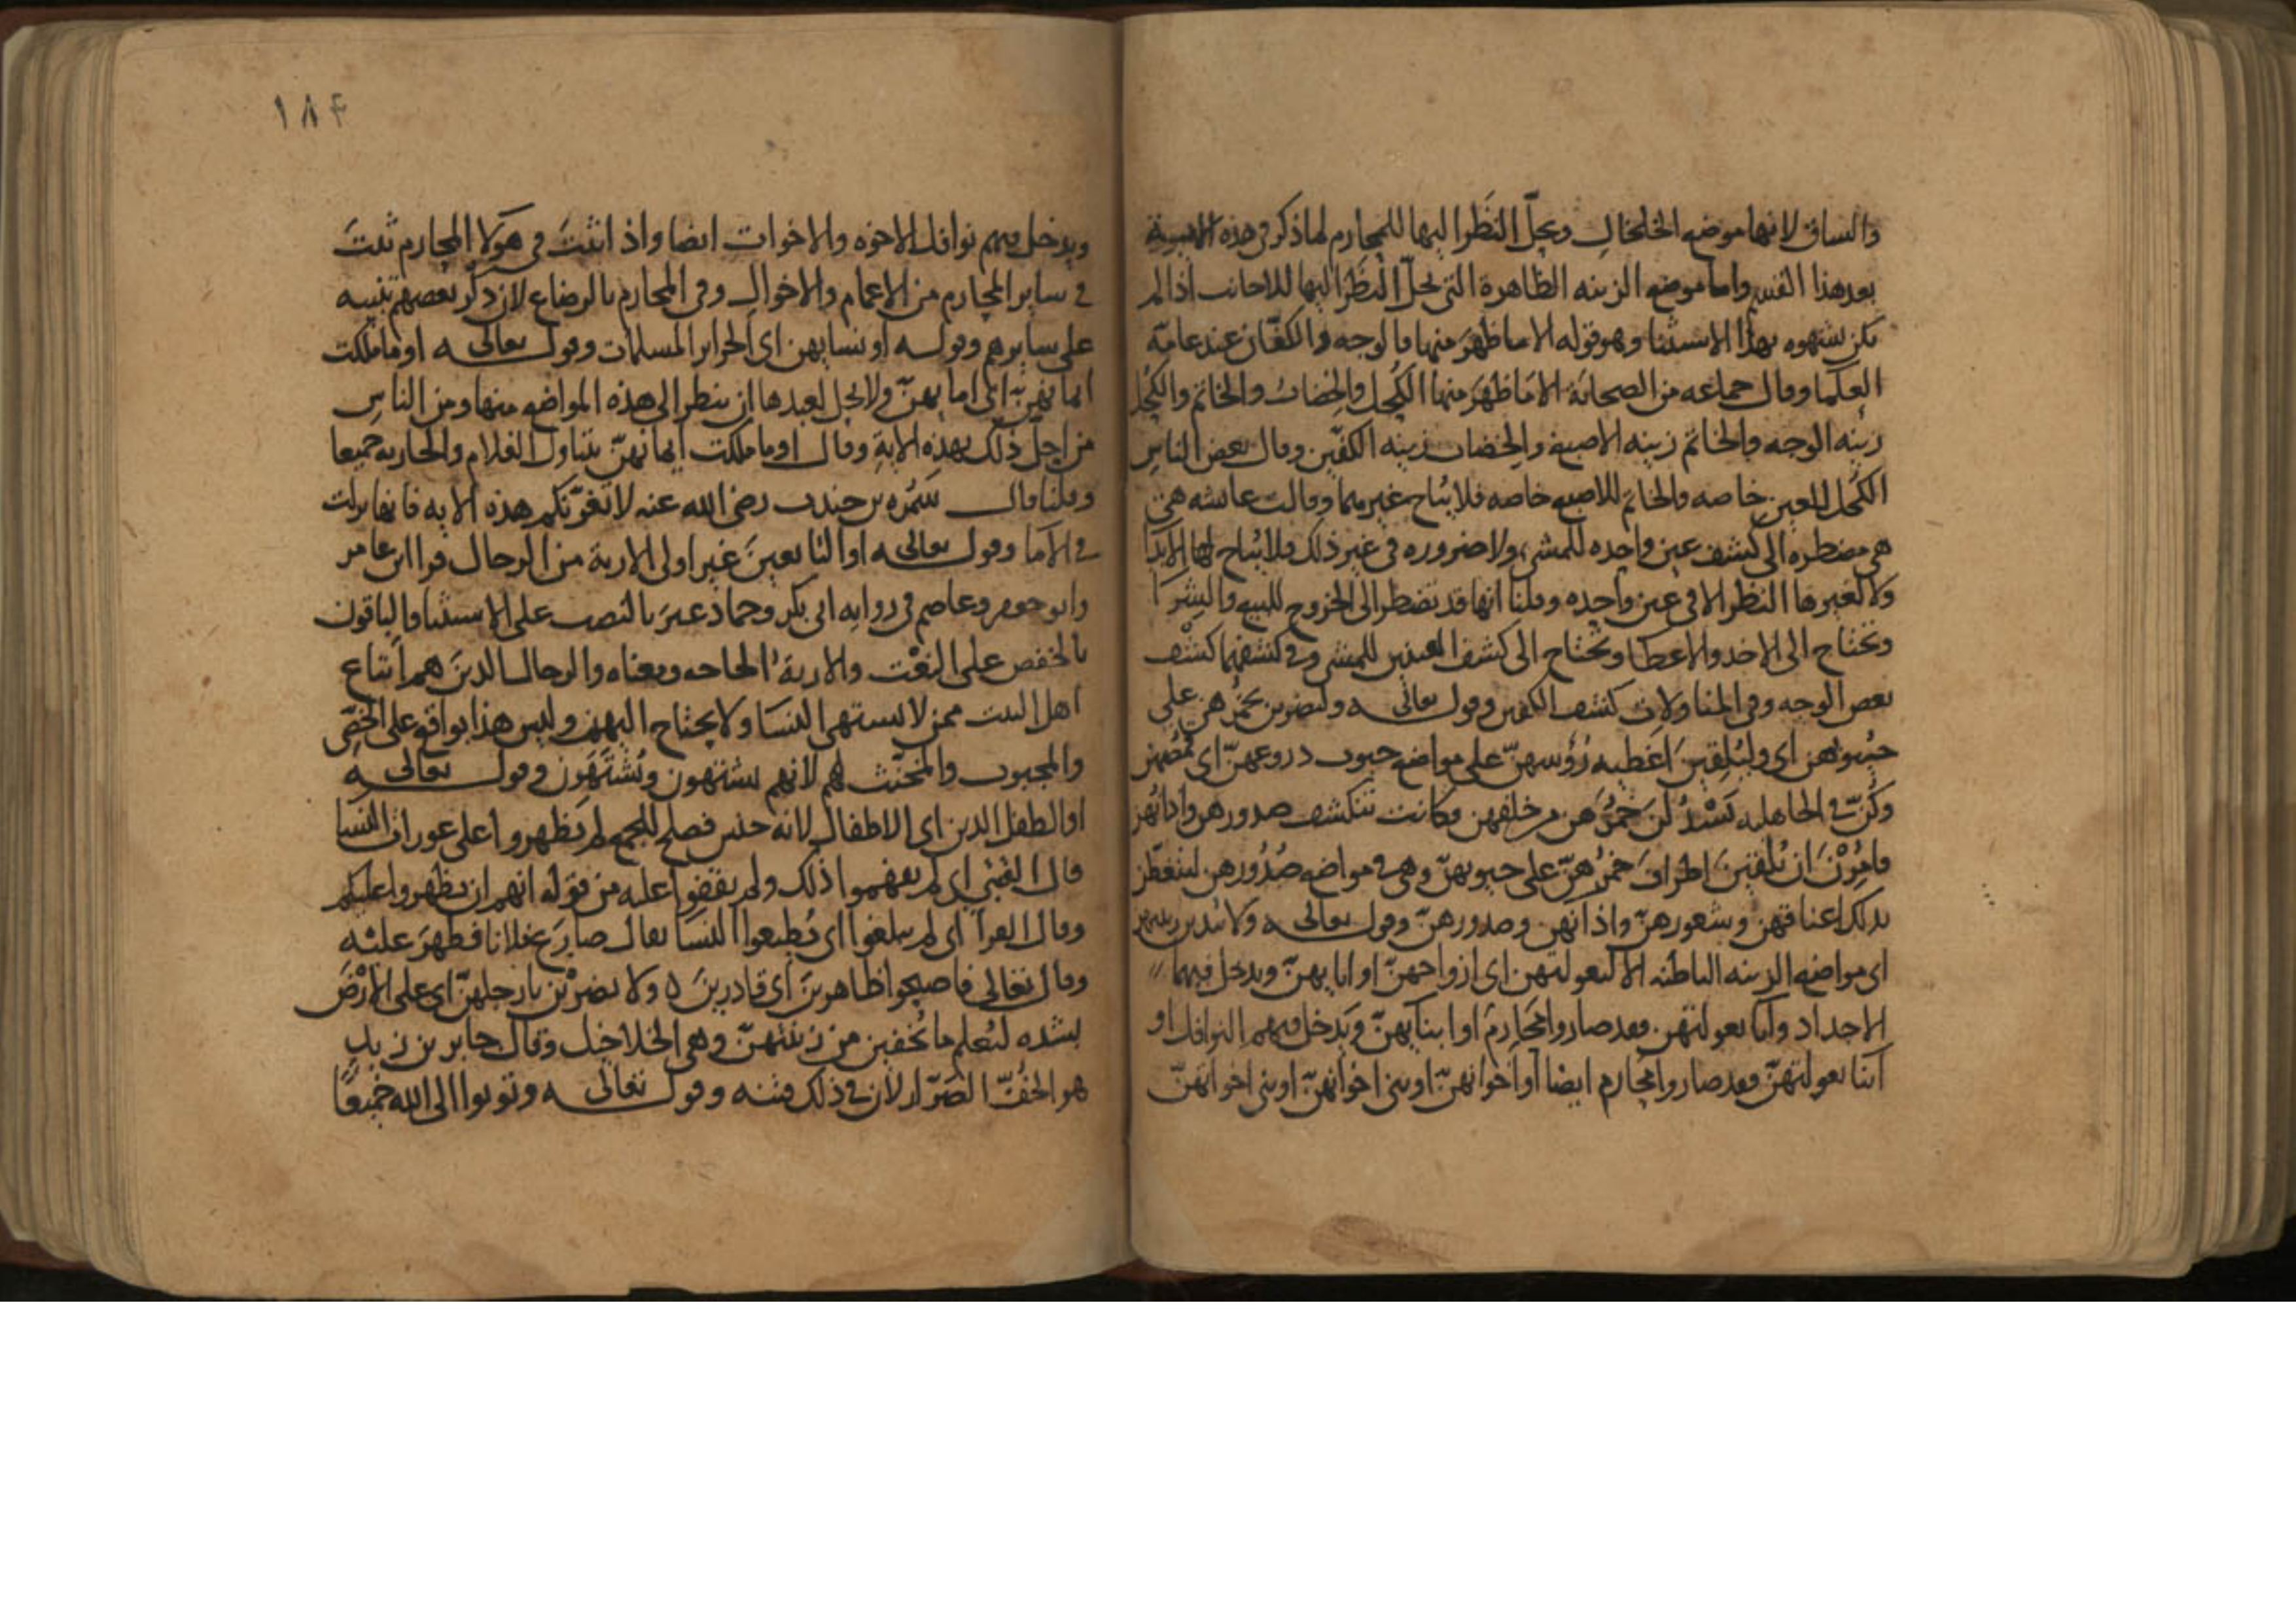 والساق لانها موضع الخلخال ويحل النظر اليها للمحارم لما ذكر في هذه الاية
بعد هذا القسم واما موضع الزينه الظاهرة التي يحل النظر اليها للاجانب اذا لم
يكن بشهوه بهذا الاستثنا وهو قوله الا ما ظهر منها فالوجه والكفان عند عامة
العلما وقال جماعه من الصحابة الا ما ظهر منها الكحل والخضاب والخاتم والكحل
زينه الوجه والخاتم زينه الاصبع والخضاب زينه الكفين وقال بعض الناس
الكحل للعين خاصه والخاتم للاصبع خاصه فلا يباح غيرهما وقالت عائشه هي
هي مضطره الى كشف عين واحده للمشي ولا ضروره في غير ذلك فلا يباح لها الابدا
ولا لغيرها النظر الا في عين واحده وقلنا انها قد تضطر الى الخروج للبيع والشرا
وتحتاج الى الاخد والاعطا وتحتاج الى كشف العينين للمشي وفي كشفهما كشف
بعض الوجه وفي المناولات كشف الكفين وقوله تعالى وليضربن بخمرهن على
جيوبهن اي وليلقين اغطيه رؤسهن على مواضع جيوب دروعهن اي قمصهن
وكن في الجاهليه يسدلن خمرهن من خلفهن فكانت تنكشف صدورهن واذانهن
فامرن ان يلقين اطراف خمرهن على جيوبهن وهي في مواضع صدورهن ليتغطين
بذلك اعناقهن وشعورهن واذانهن وصدورهن وقوله تعالى ولا يبدين زينتهن
اي مواضع الزينه الباطنه الا لبعولتهن اي ازواجهن او ابايهن ويدخل فيهما
الاجداد وابا بعولتهن فقد صاروا محارم او ابنايهن ويدخل فيهم النوافل او
ابنا بعولتهن فقد صاروا محارم ايضا او اخوانهن او بني اخوانهن او بني اخواتهن
١٨٤
ويدخل فيهم نوافل الاخوه والاخوات ايضا واذا ثبت في هولا المحارم ثبت
في ساير المحارم من الاعمام والاخوال وفي المحارم بالرضاع لان ذكر بعضهم تنبيه
على سايرهم وقوله او نسايهن اي الحراير المسلمات وقوله تعالى او ما ملكت
ايمانهن اي امايهن ولا يحل لعبدها ان ينظر الى هذه المواضع منها ومن الناس
من احل ذلك بهذه الاية وقال او ما ملكت ايمانهن يتناول الغلام والجاريه جميعا
وقلنا قال سمره بن جندب رضي الله عنه لا تغرنكم هذه الايه فانها نزلت
في الاما وقوله تعالى او التابعين غير اولي الاربة من الرجال قرا ابن عامر
وابو جعفر وعاصم في روايه ابي بكر وحماد غير بالنصب على الاستثنا والباقون
بالخفض على النعت والاربة الحاجه ومعناه والرجال الدين هم اتباع
اهل البيت ممن لا يستهي النسا ولا يحتاج اليهن وليس هذا بواقع على الخصي
والمجبوب والمخنث لهم لانهم يشتهون ويشتهون وقوله تعالى
او الطفل الدين اي الاطفال لانه جنس فصلح للجمع لم يظهروا على عورات النسا
قال القتبي اي لم يفهموا ذلك ولم يقفوا عليه من قوله انهم ان يظهروا عليكم
وقال الفرا اي لم يبلغوا اي يطيعوا النسا يقال صارع فلانا فظهر عليه
وقال تعالى فاصبحوا ظاهرين اي قادرين ه ولا يضربن بارجلهن اي على الارض
بشده ليعلم ما يخفين من زينتهن وهي الخلاخيل وقال جابر بن زيد
هو الخف الصرار لان في ذلك فتنه وقوله تعالى وتوبوا الى الله جميعا